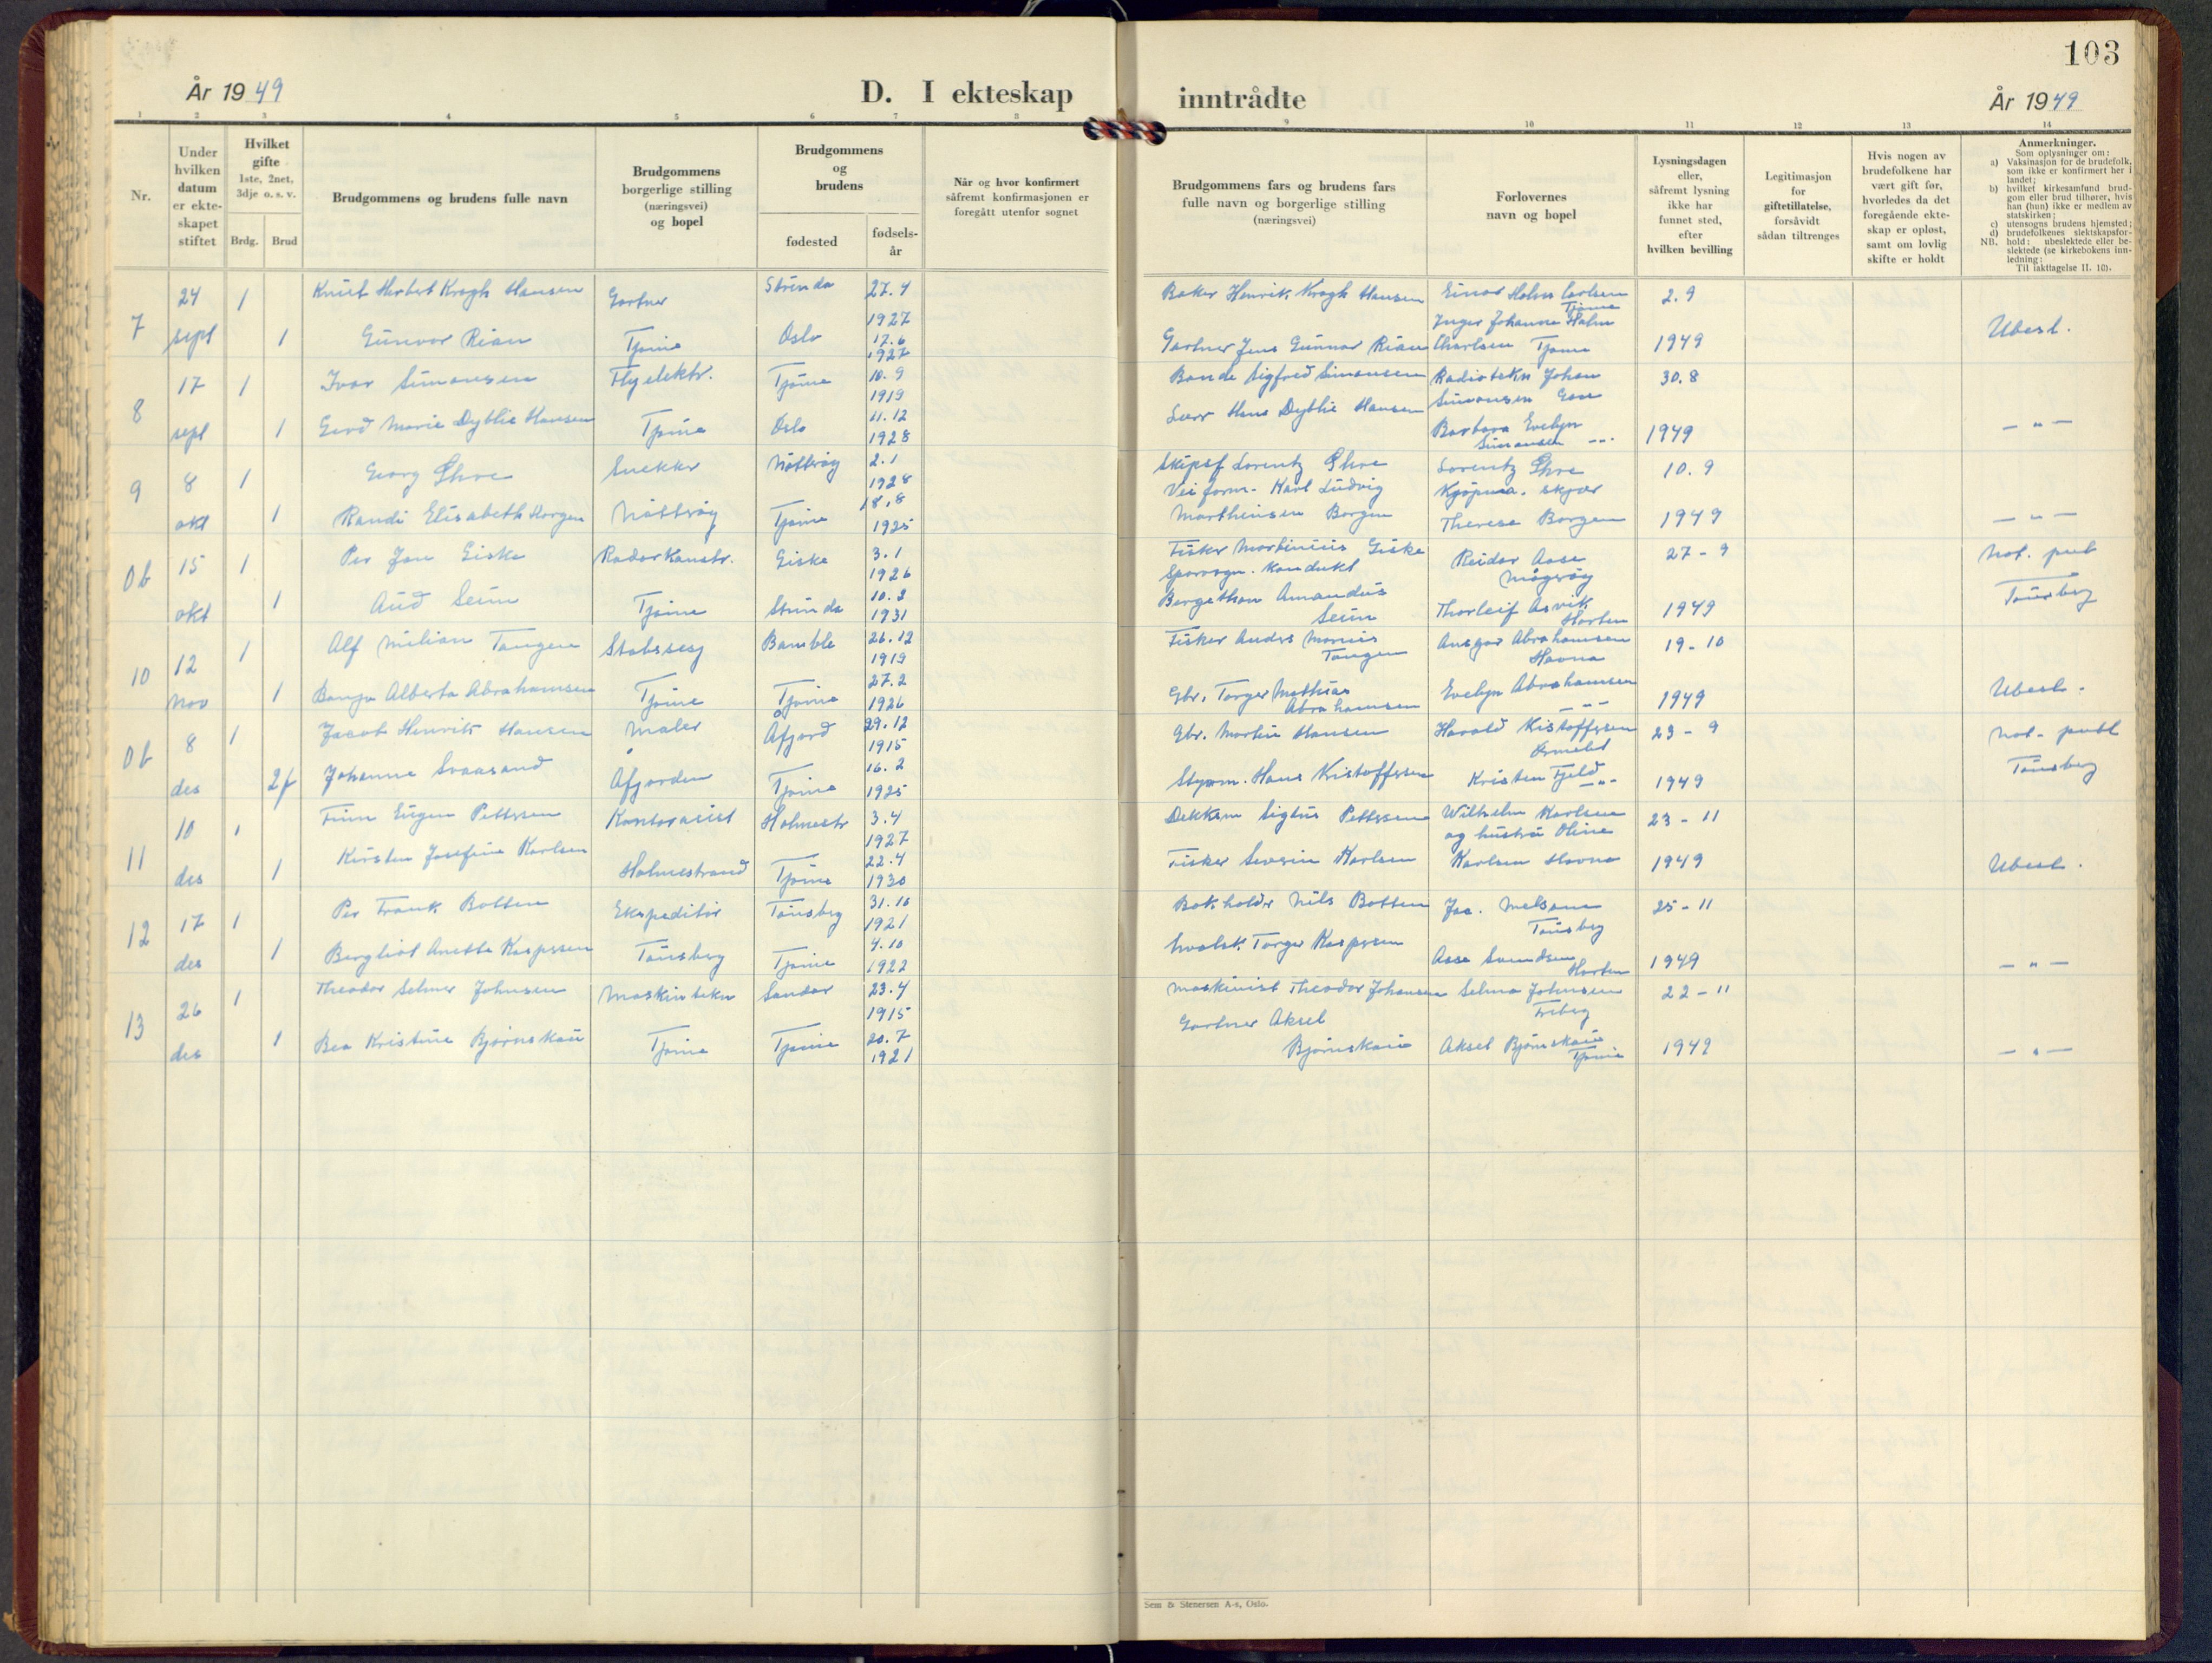 103
År 1949
D. I ekteskap inntrådte
År 1949
1 2 3 4 5 6 7 8 9 10 11 12 13 14
Nr.
Under hvilken datum er ekte-skapet stiftet
Hvilket gifte 1ste, 2net, 3dje o. s. v.
Brdg.
Brud
Brudgommens og brudens fulle navn
Brudgommens borgerlige stilling (næringsvei) og bopel
Brudgommens og brudens
fødested
fødsels-år
Når og hvor konfirmert såfremt konfirmasjonen er foregått utenfor sognet
Brudgommens fars og brudens fars fulle navn og borgerlige stilling (næringsvei)
Forlovernes navn og bopel
Lysningsdagen eller, såfremt lysning ikke har funnet sted, efter hvilken bevilling
Legitimasjon for giftetillatelse, forsåvidt sådan tiltrenges
Hvis nogen av brudefolkene har vært gift før, hvorledes da det foregående ekte-skap er opløst, samt om lovlig skifte er holdt
Anmerkninger.
Som oplysninger om:
a) Vaksinasjon for de brudefolk, som ikke er konfirmert her i landet;
b) hvilket kirkesamfund brud-gom eller brud tilhører, hvis han (hun) ikke er medlem av statskirken;
c) utensogns brudens hjemsted;
d) brudefolkenes slektskapsfor-
NB. hold: ubeslektede eller be-slektede (se kirkebokens inn-ledning:
Til iakttagelse II. 10).
7 24 sept 1 Knut Herbert Krogh Hansen Gartner Strinda 27.4 1927 Baker Henrik Krogh Hansen Einar Holm Carlsen Tjøme 2.9
1 Gunvor Rian Tjøme Oslo 17.6 1927 Gartner Jens Gunnar Rian Inger Johanne Holm Charlsen Tjøme 1949 Ubesl.
8 17 sept 1 Ivar Simonsen Flyelektr. Tjøme 10.9 1919 Bonde Sigfred Simonsen Radiotekn Johan Simonsen 30.8
1 Gerd Marie Dyblie Hansen Tjøme Oslo 11.12 1928 Hans Dyblie Hansen Barbara Evelyn Simonsen -"- 1949 -"-
9 8 okt 1 Georg Snekker Nøtterøy 2.1 1928 Skipsf Lorentz Lorentz Kjøpma. skjær 10.9
1 Randi Elisabeth Borgen Nøtterøy Tjøme 18.8 1925 Vei form. Karl Ludvig Marthinsen Borgen Therese Borgen 1949 -"-
Ob 15 okt 1 Per Jan Giske Radarkonstr. Giske 3.1 1926 Fisker Martinius Giske Reidar Aase Mågerøy 27-9 not. pub
1 Aud Seim Tjøme Strinda 1931 Sporvogn. kondukt Bergethon Amandus Seim Thorleif Asvik Horten 1949 Tønsberg
10 12 nov 1 Alf Milian Tangen Stabssesj Bamble 26.12 1919 Fisker Anders Tangen Ansgar Abrahamsen Havna 19-10
1 Alberta Abrahamsen Tjøme Tjøme 27.2 1926 Gbr. Torger Mathias Abrahamsen Evelyn Abrahamsen -"- 1949 Ubesl.
Ob 8 des 1 Jacob Henrik Hansen Maler Åfjord 29.12 1915 Gbr. Martin Hansen Harald Kistoffersen Ormelet 23-9 not. publ
2f Johanne Svaasand Åfjorden Tjøme 16.2 1925 Styrm. Hans Kristoffersen Kristen Fjeld -"- 1949 Tønsberg
11 10 des 1 Finn Eugen Pettersen Kontorasist Holmestr 3.4 1927 Dekksm Sigurs Pettersen Wilhelm Karlsen og hustru Oline 23-11
1 Kirsten Josefine Karlsen Holmestrand Tjøme 22.4 1930 Fisker Severin Karlsen Karlsen Havna 1949 Ubesl.
12 17 des 1 Per Frank Botten Ekspeditør Tønsberg 31.10 1921 Bokholdr Nils Botten Jac. Melsom Tønsberg 25-11
1 Bergliot Anette Kaspersen Tønsberg Tjøme 4.10 1922 hvalsk. Torger Kaspersen Aase Svendsen Horten 1949 -"-
13 26 des 1 Theodor Selmer Johnsen Maskintekn Sandar 23.4 1915 Maskinist Theodor Johansen Selma Johnsen 22-11
1 Bea Kristine Bjørnskau Tjøme Tjøme 20.7 1921 Gartner Aksel Bjørnskau Aksel Bjørnskau Tjøme 1949 -"-
Sem & Stenersen A-s, Oslo.